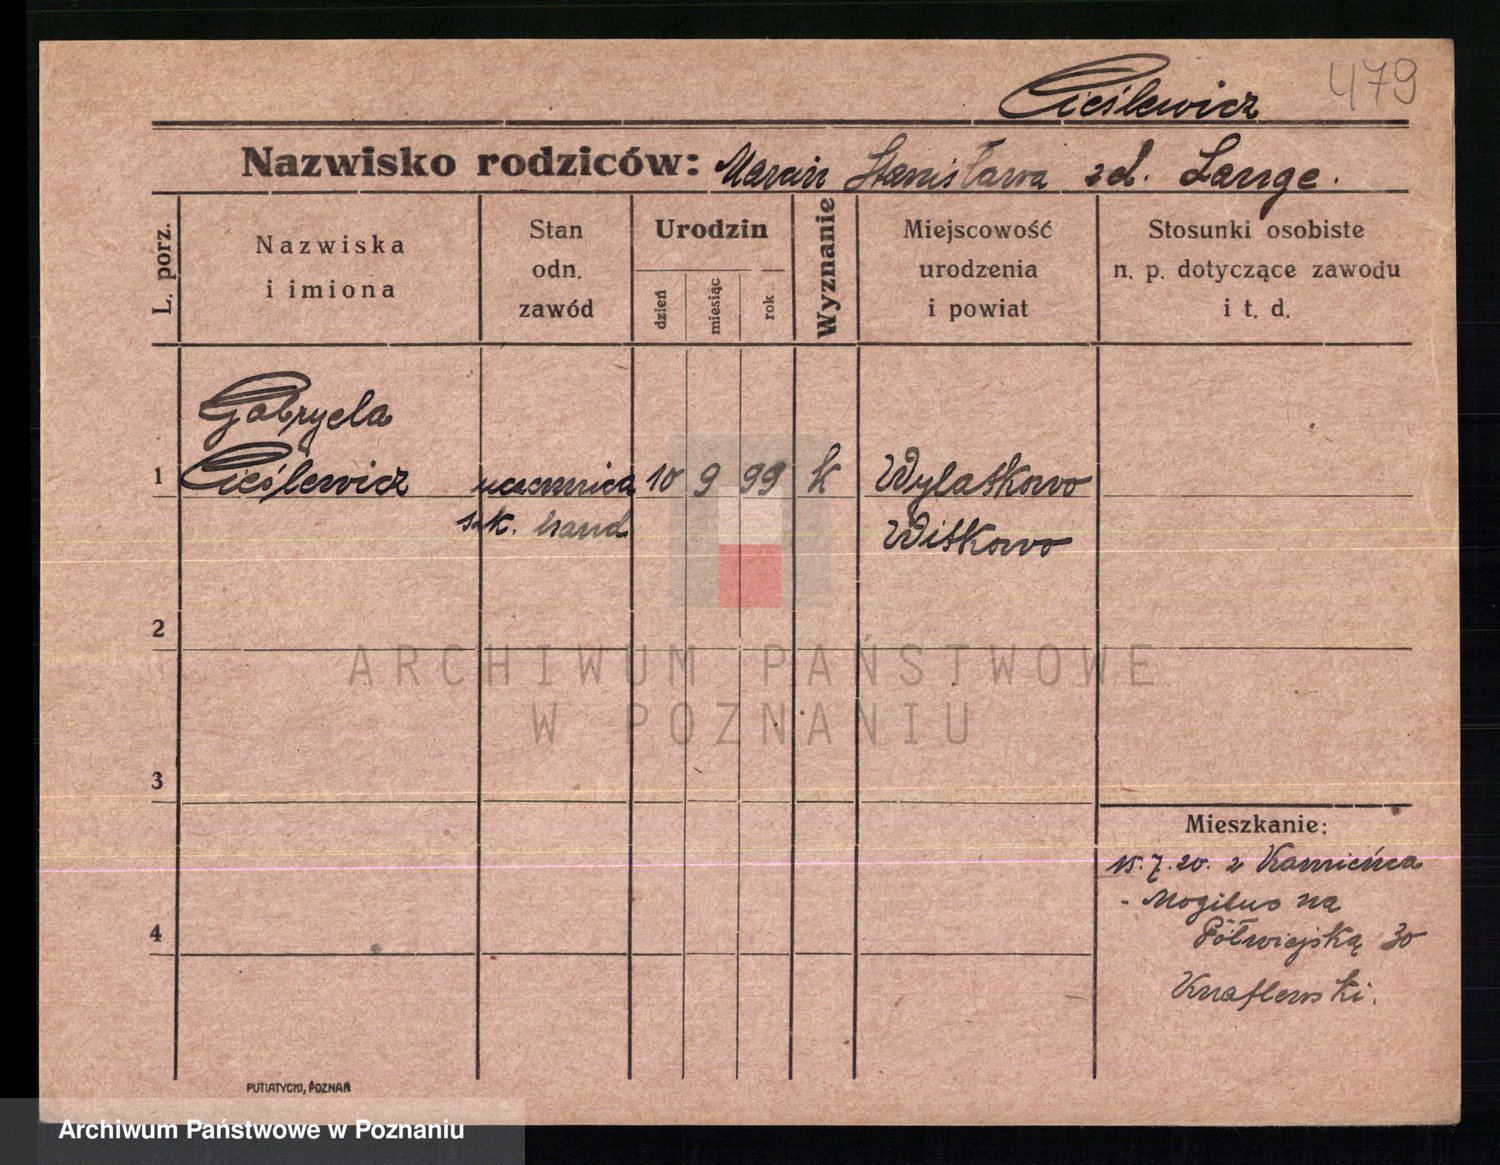 Cieślewicz 479
Nazwisko rodziców: Marcin Stanisława zd. Lange.
L. porz.
Nazwiska
i imiona
Stan
odn.
zawód
Urodzin
dzień
miesiąc
rok
Wyznanie
Miejscowość
urodzenia
i powiat
Stosunki osobiste
n. p. dotyczące zawodu
i t. d.
Gabryela
1 Cieślewicz uczennica 10 9 99 k Wylatkowo
szk. hand Witkowo
2
ARCHIWUM PAŃSTWOWE
W POZNANIU
3
Mieszkanie:
15.7.20. z Kamieńca
- Mogilno na
4 Półwiejską 30
Knaflewski.
PUTIATYCKI, POZNAŃ
Archiwum Państwowe w Poznaniu